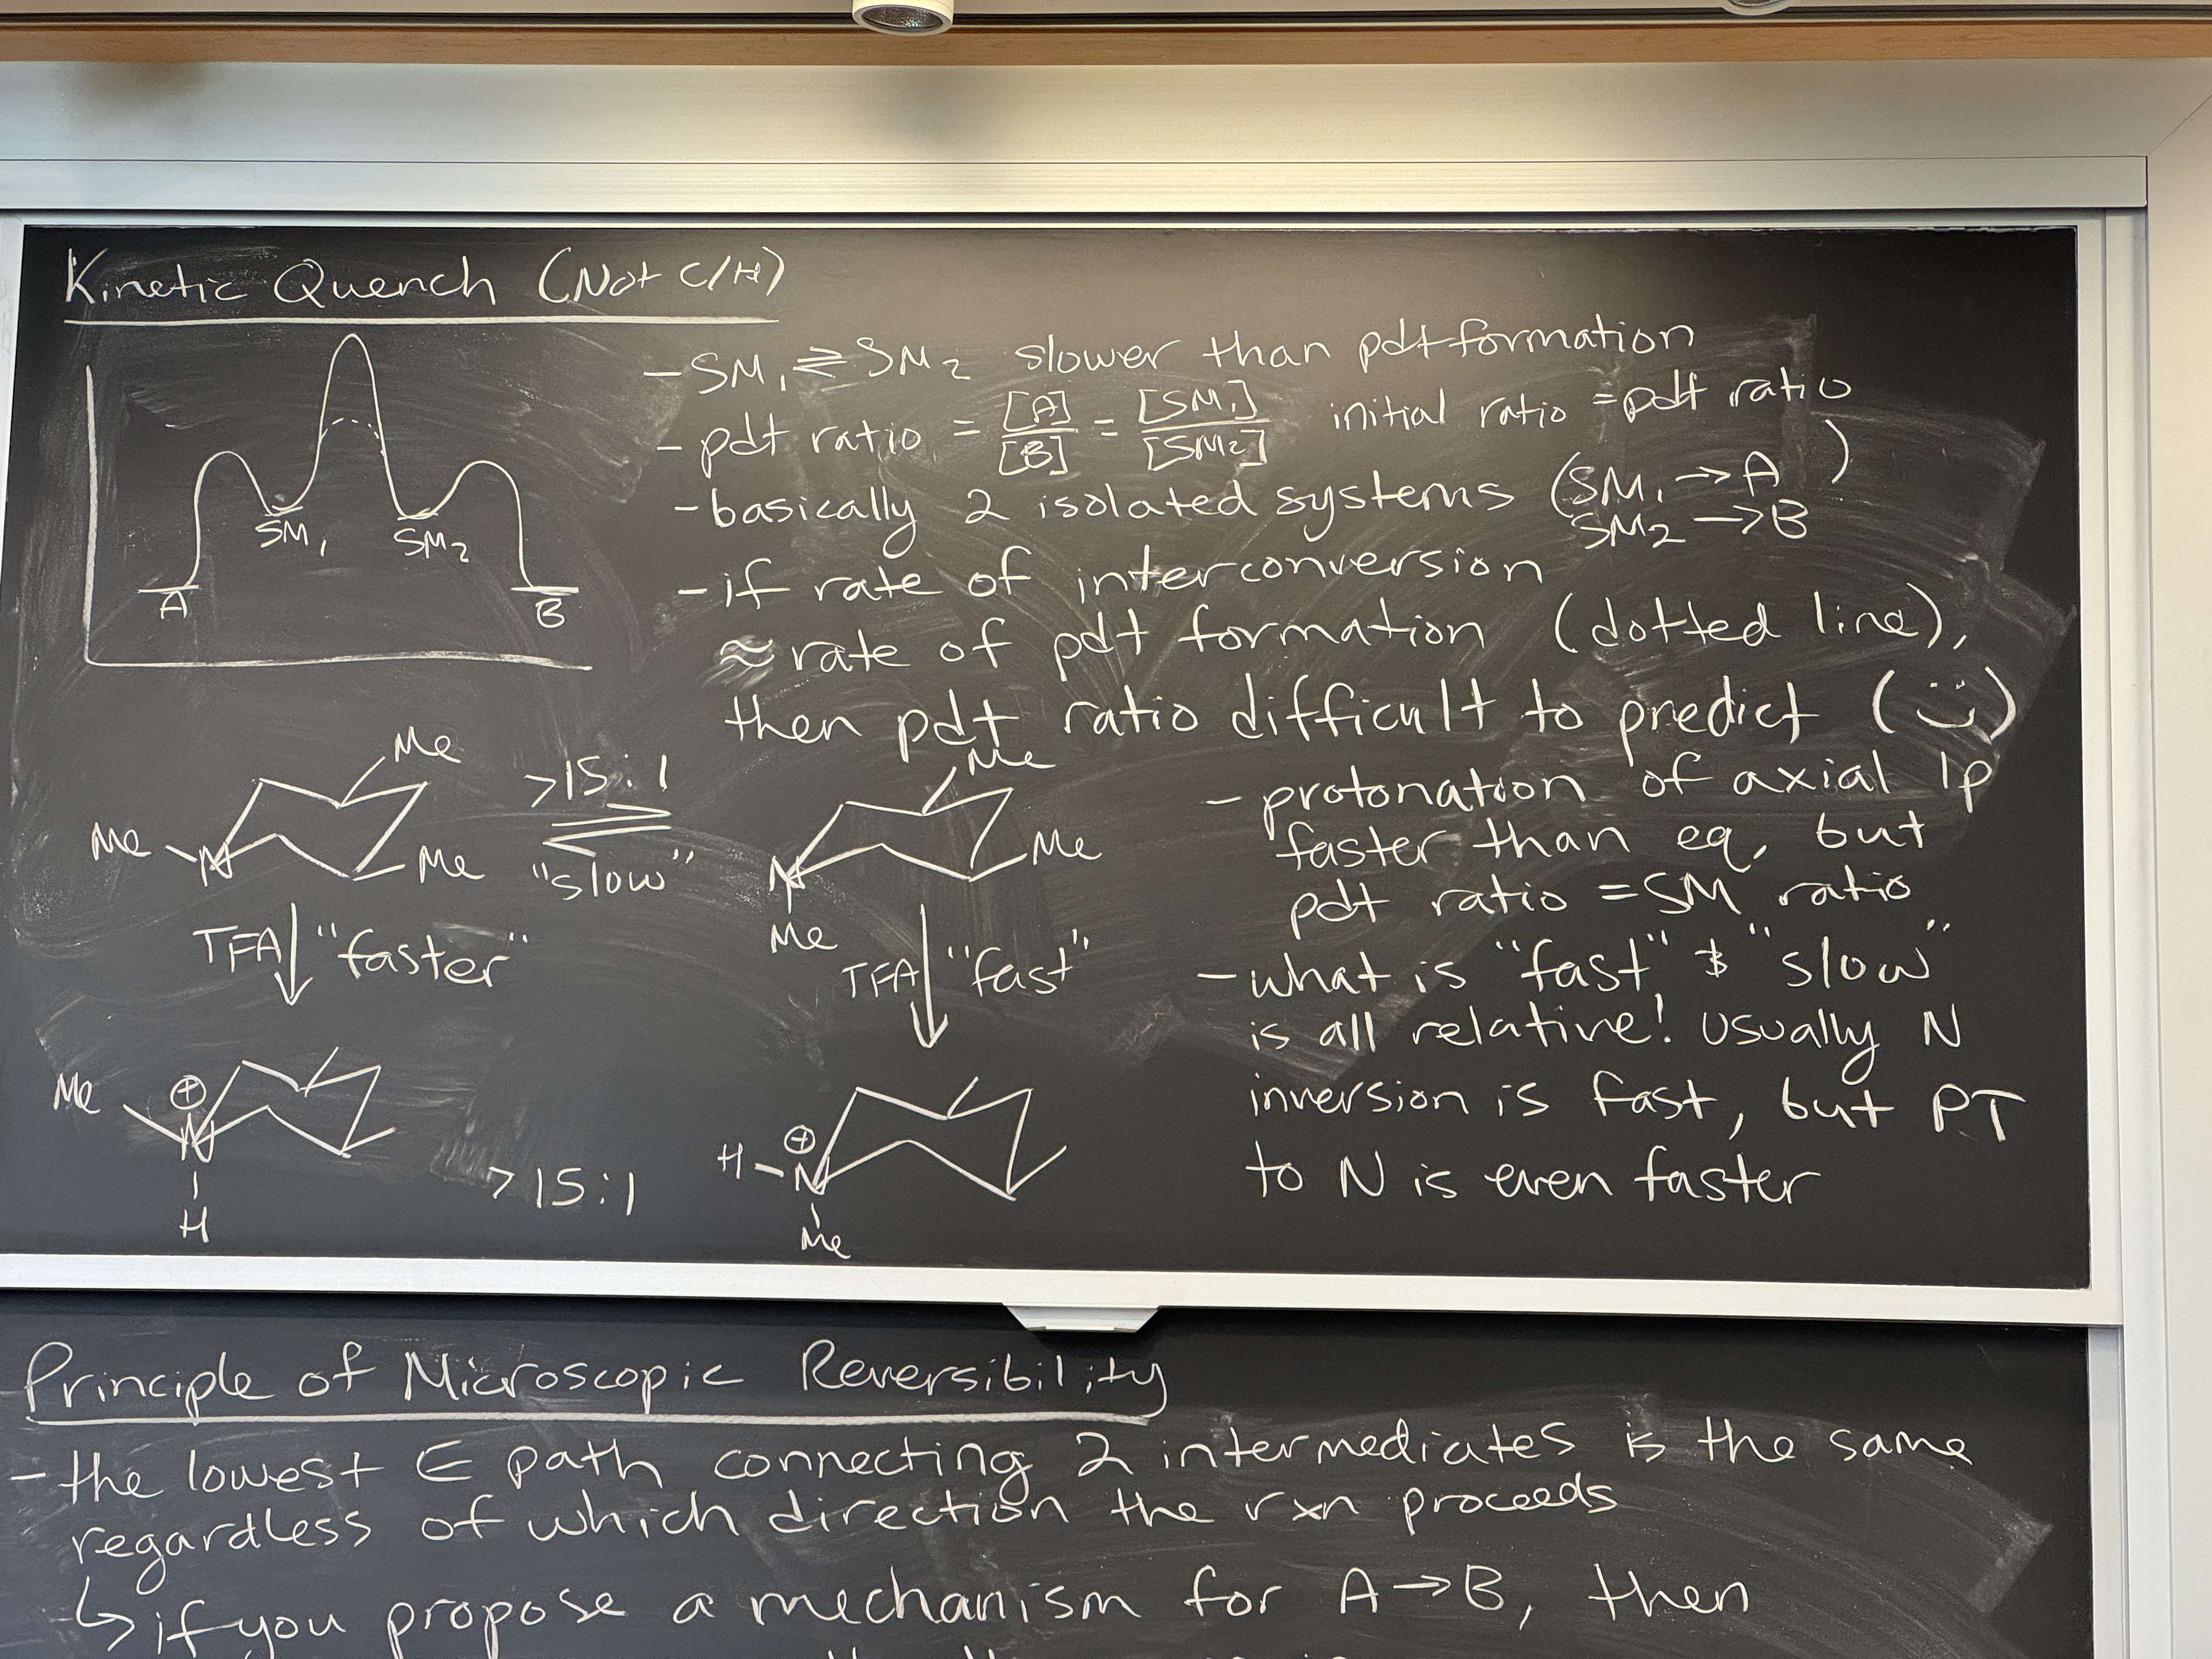 Kinetic Quench (Not C/H)
SM₁ SM₂
A B
- SM₁ ⇌ SM₂ slower than pdt formation
- pdt ratio = [A]/[B] = [SM₁]/[SM₂] initial ratio = pdt ratio
- basically 2 isolated systems (SM₁ → A
SM₂ → B)
- if rate of interconversion
≈ rate of pdt formation (dotted line),
then pdt ratio difficult to predict (:)
Me
Me N Me
>15:1
⇌
"slow"
Me
N Me
Me
TFA ↓ "faster"
TFA ↓ "fast"
Me ⊕
N
H
>15:1
H N ⊕
Me
- protonation of axial lp
faster than eq, but
pdt ratio = SM ratio
- what is "fast" & "slow"
is all relative! Usually N
inversion is fast, but PT
to N is even faster
Principle of Microscopic Reversibility
- the lowest E path connecting 2 intermediates is the same
regardless of which direction the rxn proceeds
↳ if you propose a mechanism for A → B, then